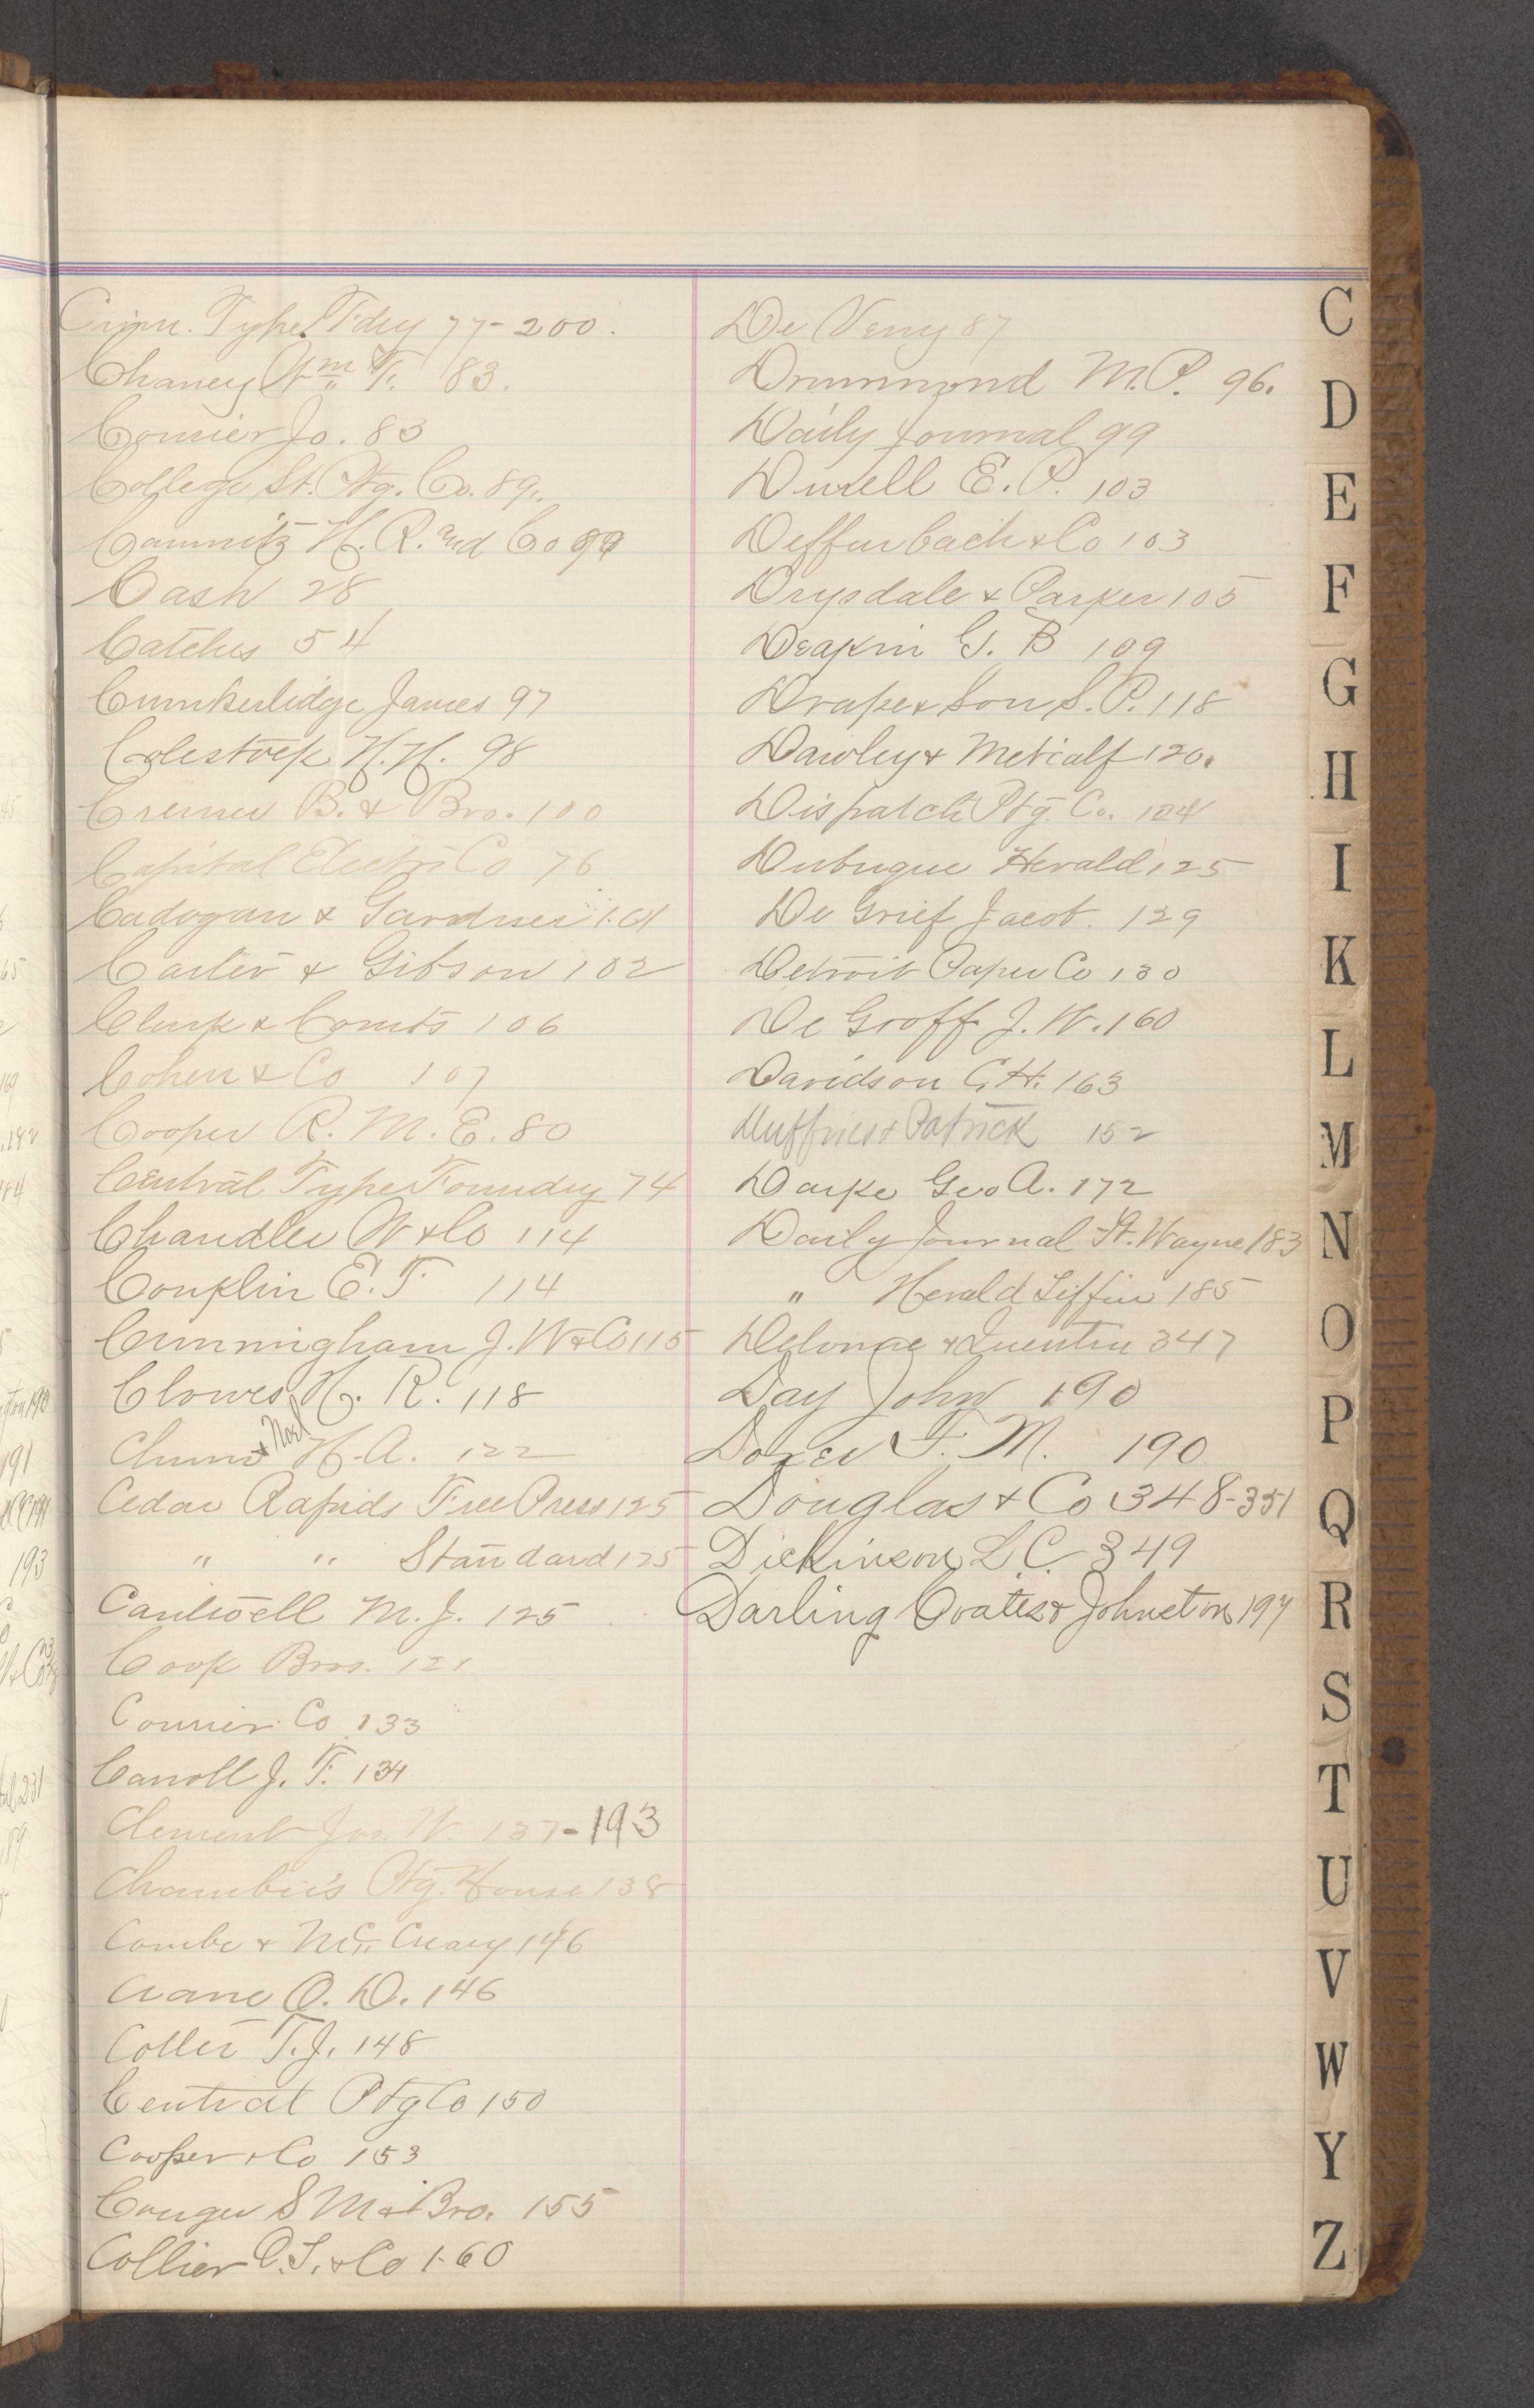 Cinn. Type Fdry 77-200.
Chaney Wm F. 83.
Courier Jo. 83
College St. Ptg. Co. 89.
H. R. and Co 99
Cash 28
Catches 54
James 97
Colestock H. H. 98
Cremer B. & Bro. 100
Capital Electric Co 76
Cadogan & Gardner 101
Carter & Gibson 102
Clark & Courts 106
Cohen & Co 107
Cooper R. M. E. 80
Central Type Foundry 74
Chandler W & Co 114
Conklin E. T. 114
Cunningham J. W & Co 115
Clowes H. R. 118
& Noel H. A. 122
Cedar Rapids Free Press 125
" " Standard 125
Cantwell M. J. 125
Cook Bros.
Courier Co 133
Carroll J. F. 134
Clement Jos. W. 137-193
Chamber's Ptg. House 138
Combe & McCreary 146
Crane O. D. 146
Coller T. J. 148
Central Ptg Co 150
Cooper & Co 153
Conger S M & Bro. 155
Collier & Co 160
De Veny 87
Drummond M. P. 96.
Daily Journal 99
Durell E. P. 103
Deffenbach & Co 103
Drysdale & Parker 105
Deakin G. B 109
Draper & Son S. P. 118
Dawley & Metcalf 120.
Dispatch Ptg. Co. 124
Dubuque Herald 125
De Grief Jacob. 129
Detroit Paper Co 130
De Groff J. W. 160
Davidson C. H. 163
& Patrick 152
Darke Geo A. 172
Daily Journal Ft. Wayne 183
" Herald Tiffin 185
& Quentin 347
Day John 190
F. M. 190
Douglas & Co 348-351
Dickinson L. C. 349
Darling Coates & Johnston 197
C
D
E
F
G
H
I
K
L
M
N
O
P
Q
R
S
T
U
V
W
Y
Z